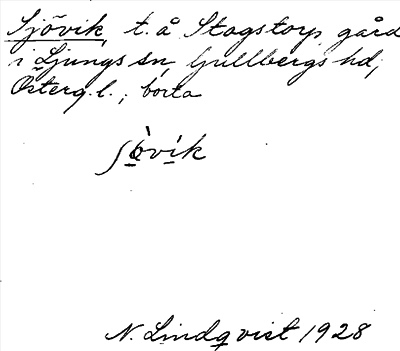 Sjövik, t. å Stagstorp, gård
i Ljungs sn, Gullbergs hd,
Österg. l.; borta
ʃö̀vík
N. Lindqvist 1928